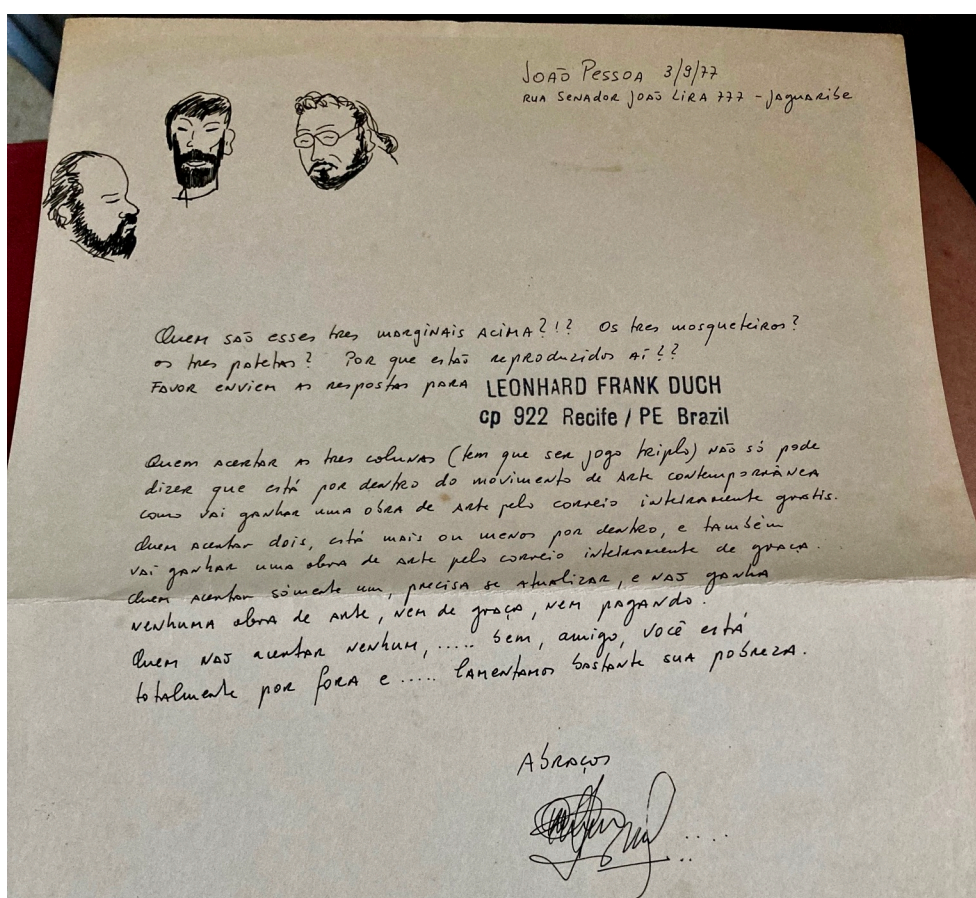 JOÃO PESSOA 3/9/77
RUA SENADOR JOÃO LIRA 777 - JAGUARIBE
Quem são esses tres marginais acima?!? Os tres mosqueteiros?
os tres patetas? Por que estão reproduzidos aí!?
Favor enviem as respostas para LEONHARD FRANK DUCH
cp 922 Recife / PE Brazil
Quem acertar as tres colunas (tem que ser jogo triplo) não só pode
dizer que está por dentro do movimento de arte contemporânea
como vai ganhar uma obra de arte pelo correio inteiramente gratis.
Quem acertar dois, está mais ou menos por dentro, e também
vai ganhar uma obra de arte pelo correio inteiramente de graça.
Quem acertar sómente um, precisa se atualizar, e não ganha
nenhuma obra de arte, nem de graça, nem pagando.
Quem não acertar nenhum, ..... bem, amigo, você está
totalmente por fora e ..... lamentamos bastante sua pobreza.
Abraços